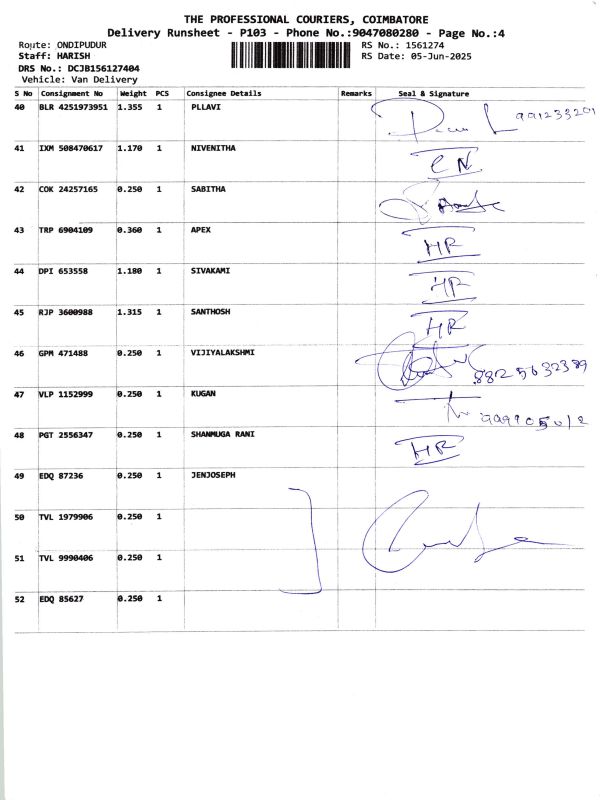 THE PROFESSIONAL COURIERS, COIMBATORE
Delivery Runsheet - P103 - Phone No.:9047080280 - Page No.:4
Route: ONDIPUDUR RS No.: 1561274
Staff: HARISH RS Date: 05-Jun-2025
DRS No.: DCJB156127404
Vehicle: Van Delivery
S No Consignment No Weight PCS Consignee Details Remarks Seal & Signature
40 BLR 4251973951 1.355 1 PLLAVI
41 IXM 508470617 1.170 1 NIVENITHA CN
42 COK 24257165 0.250 1 SABITHA
43 TRP 6904109 0.360 1 APEX HR
44 DPI 653558 1.180 1 SIVAKAMI HR
45 RJP 3600988 1.315 1 SANTHOSH HR
46 GPM 471488 0.250 1 VIJIYALAKSHMI 8825632389
47 VLP 1152999 0.250 1 KUGAN
48 PGT 2556347 0.250 1 SHANMUGA RANI HR
49 EDQ 87236 0.250 1 JENJOSEPH
50 TVL 1979906 0.250 1
51 TVL 9990406 0.250 1
52 EDQ 85627 0.250 1